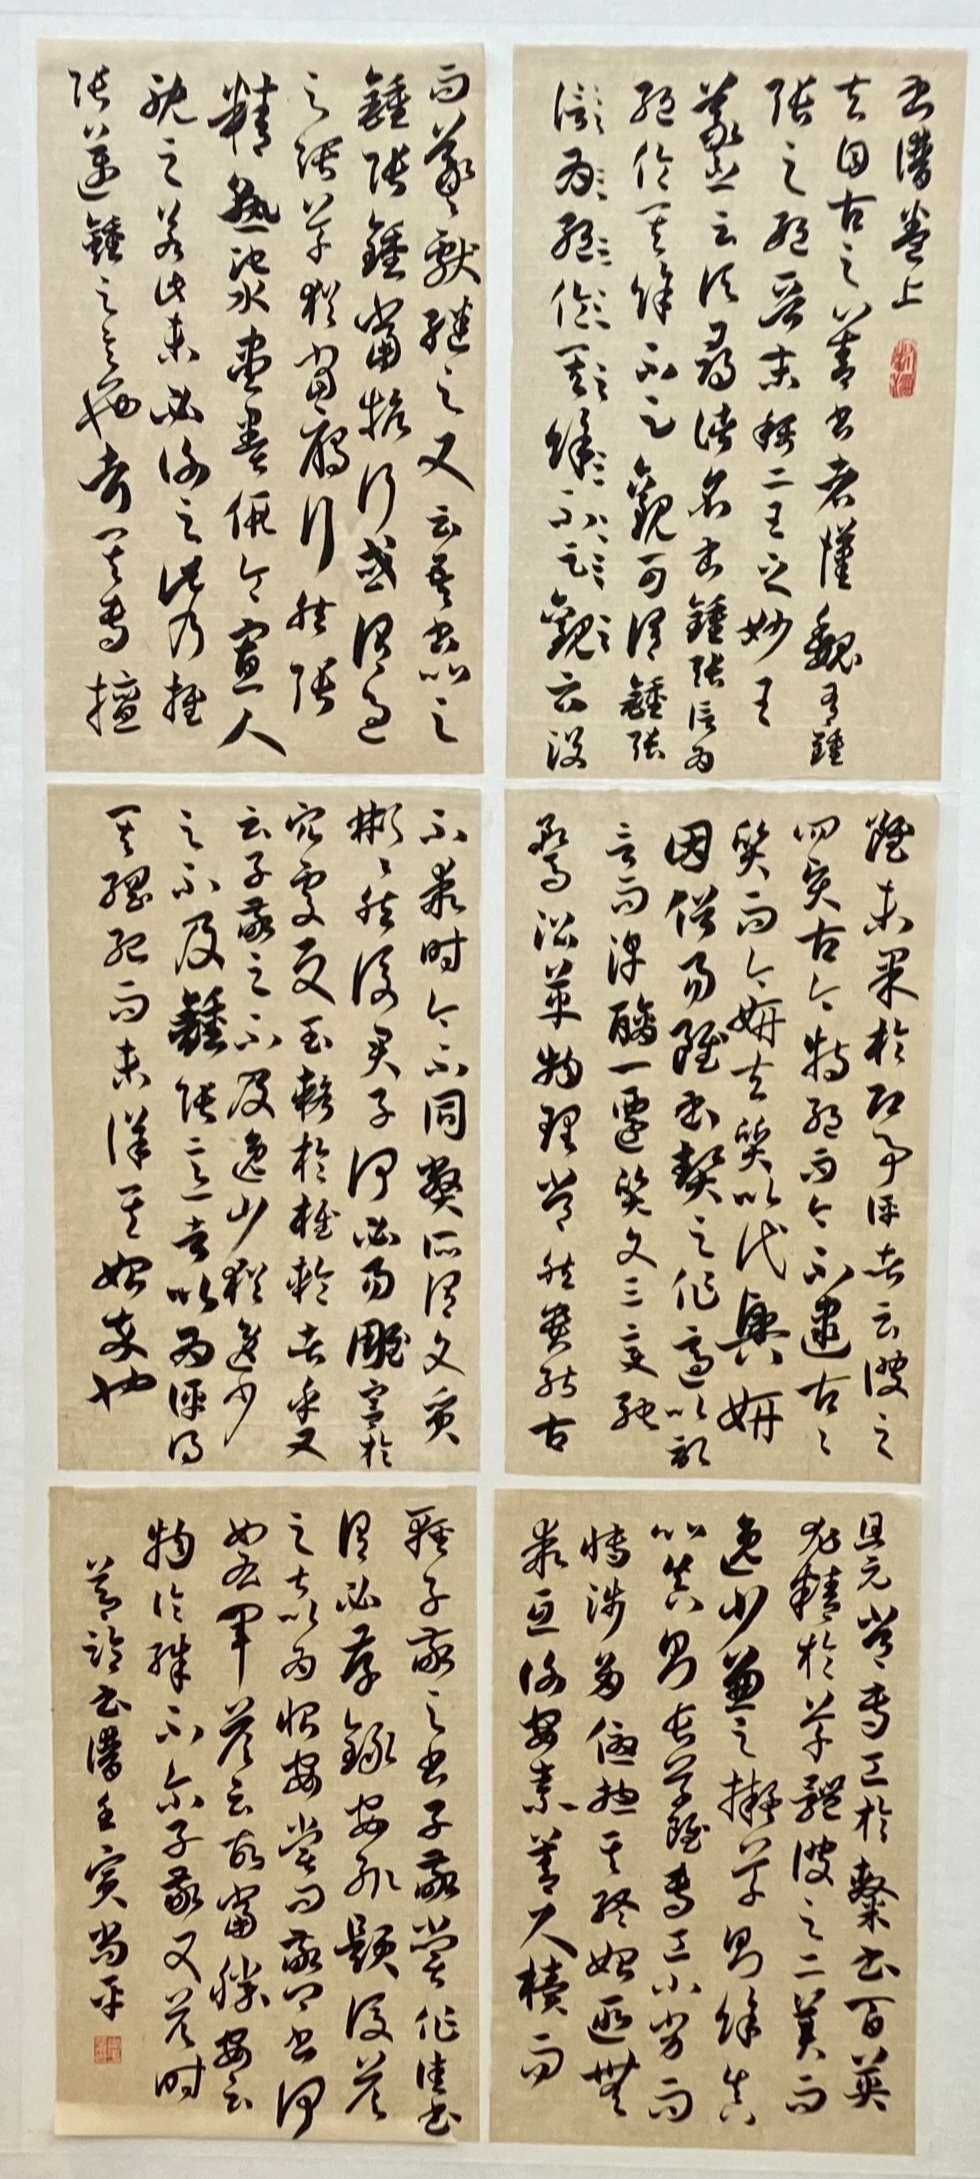 书譜卷上
夫自古之善书者漢魏有鍾
張之絕晉末稱二王之妙王
羲之云頃尋諸名书鍾張信為
絕倫其餘不足觀可謂鍾張
信為絕倫其餘不足觀云没
而羲獻繼之又云吾书比之
鍾張鍾當抗行或謂過
之張草猶當雁行然張
精熟池水盡墨假令寡人
耽之若此未必謝之此乃推
張邁鍾之意也考其專擅
雖未果於即事評者云彼之
四賢古今特絕而今不逮古々
質而今妍夫質以代興妍
因俗易雖书契之作適以記
言而淳醨一遷質文三變馳
騖沿革物理常然貴能古
不乖时今不同弊所謂文質
彬々然後君子何必易雕宮於
穴處反玉輅於椎輪者乎又
云子敬之不及逸少猶逸少
之不及鍾張意者以為評得
其綱紀而未詳其始卒也
且元常專工於隸书百英
尤精於草體彼之二美而
逸少兼之擬草則餘真
比真則長草雖專工小劣而
博涉多優揔其終始匪無
乖互謝安素善尺牘而
輕子敬之书子敬嘗作佳书
謂必存錄安輒題後答
之甚以為恨安嘗問敬卿书何
如右軍答云故當勝安云
物論殊不尔子敬又答时
節臨书譜壬寅尚平